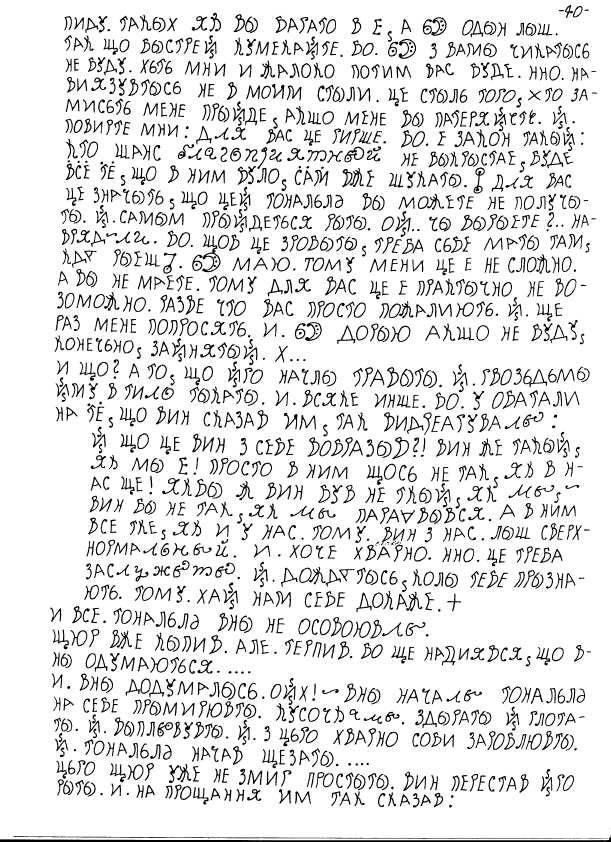 -40-
ПИДУ. ТАКЫХ ЯК ВЫ БАГАТО В Е, А ОДЫН ЛЫШ.
ТАК ЩО БЫСТРЕЙ КУМЕКАЙТЕ. БО. З ВАМЫ ЧИКАТЫСЬ
НЕ БУДУ. ХОТЬ МНИ И ЖАЛОКО ПОТИМ ВАС БУДЕ. ННО. НА-
ВИЯЗУВТЫСЬ НЕ В МОИМ СТЫЛИ. ЦЕ СТЫЛЬ ТОГО, ХТО ЗА-
МИСЬТЬ МЕНЕ ПРЫЙДЕ, АКЩО МЕНЕ ВЫ ПАТЕРЯЙСТЕ. Й.
ПОВИРТЕ МНИ: ДЛЯ ВАС ЦЕ ГИРШЕ. БО. Е ЗАКОН ТАКЫЙ:
КТО ШАНС БЛАГОПРИЯТНЫЙ НЕ ВЫКРЫСТАЕ, БУДЕ
ВСЁ ТЕ, ЩО В НИМ БУЛО, САМ ВЖЕ ШУКАТЫ. ДЛЯ ВАС
ЦЕ ЗНАЧЫТЬ, ЩО ЦЕЙ ТОНАЛЬЛД ВЫ МОЖЕТЕ НЕ ПОЛУЧЫ-
ТЫ. Й. САМЫМ ПРЫЙДЕТЬСЯ РЫТЫ. ОЙ.. ЧЫ ВЫРЫЕТЕ?.. НА-
ВРЯД ЛИ. БО. ЩОБ ЦЕ ЗРОБЫТЫ, ТРЕБА СЕБЕ МАТЫ ТАМ,
МАЮ. ТОМУ МЕНИ ЦЕ Е НЕ СЛОЖНО.
А ВЫ НЕ МАЕТЕ. ТОМУ ДЛЯ ВАС ЦЕ Е ПРАКТЫЧНО НЕ ВО-
ЗОМОЖНО. РАЗВЕ ЧТО ВАС ПРОСТО ПОЖАЛИЮТЬ. Й. ЩЕ
РАЗ МЕНЕ ПОПРОСЯТЬ. И. ДОРЫЮ АКЩО НЕ БУДУ,
КОНЕЧЬНО, ЗАЙНЯТЫЙ. Х...
И ЩО? А ТО, ЩО ЙГО НАЧЛЫ ТРАВЫТЫ. Й. ГВОЗЬДЬМЫ
ЙМУ В ТИЛО ТЫКАТЫ. И. ВСЯКЕ ИНШЕ. БО. У ОБАТАЛИ
НА ТЁ, ЩО ВИН СКАЗАВ ИМ, ТАК ВИДРЕАГУВАЛЫ:
Й ЩО ЦЕ ВИН З СЕБЕ ВОБРАЗЫВ?! ВИН ЖЕ ТАКЫЙ,
ЯК МЫ Е! ПРОСТО В НИМ ЩОСЬ НЕ ТАК, ЯК В Н-
АС ЩЕ! ЯКБЫ Ж ВИН БУВ НЕ ТКЫЙ, ЯК МЫ,
ВИН БЫ НЕ ТАК, ЯК МЫ ПАРАВЫВСЯ. А В НИМ
ВСЕ ТКЕ, ЯК И У НАС. ТОМУ. ВИН З НАС. ЛЫШ СВЕРХ-
НОРМАЛЬНЫЙ. И. ХОЧЕ ХВАРНО. ННО. ЦЕ ТРЕБА
ЗАСЛУЖЫТЫ. Й. ДОЖДАТЫСЬ, КОЛЫ ТЕБЕ ПРЫЗНА-
ЮТЬ. ТОМУ. ХАЙ НАМ СЕБЕ ДОКАЖЕ. +
И ВСЕ. ТОНАЛЬЛД ВНЫ НЕ ОСВОЮВЛЫ.
ЩЮР ВЖЕ КЫПИВ. АЛЕ. ТЕРПИВ. БО ЩЕ НАДИЯВСЯ, ЩО В-
НЫ ОДУМАЮТЬСЯ. ....
И. ВНЫ ДОДУМАЛЫСЬ. ОЙХ! ~ ВНЫ НАЧАЛЫ ТОНАЛЬЛД
НА СЕБЕ ПРЫМИРЮВТЫ. КУСОЧКАМЫ. ЗДЫРАТЫ Й ГЛОТА-
ТЫ. Й. ВЫПЛЬОВУВТЫ. Й. З ЦЬРО ХВАРНО СОБИ ЗАРОБЛЮВТЫ.
Й. ТОНАЛЬЛД НАЧАВ ЩЕЗАТЫ. ....
ЦЬРО ЩЮР УЖЕ НЕ ЗМИГ ПРОСТЫТЫ. ВИН ПЕРЕСТАВ ЙГО
РЫТЫ. И. НА ПРОЩАННЯ ИМ ТАК СКАЗАВ: